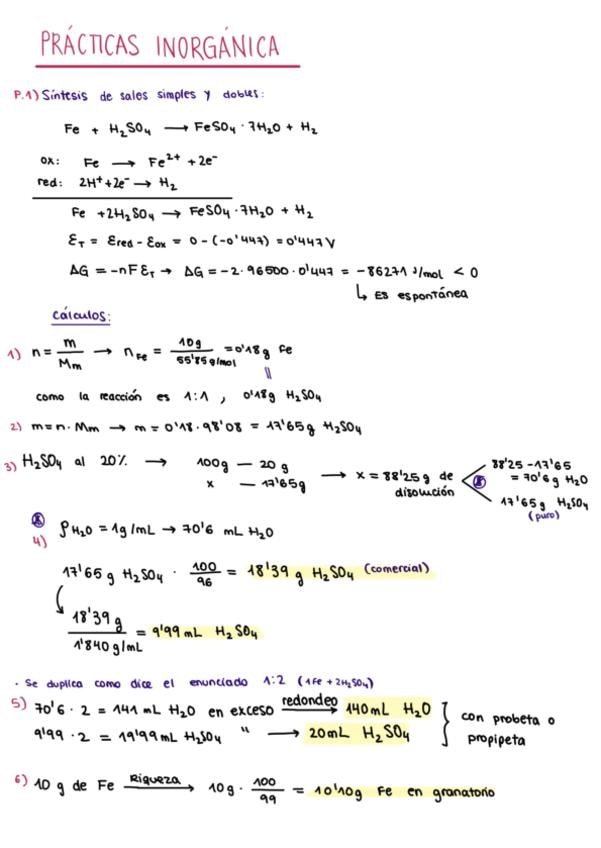 PRÁCTICAS INORGÁNICA
P.1) Síntesis de sales simples y dobles:
Fe + H₂SO₄ ⟶ FeSO₄ · 7H₂O + H₂
ox: Fe ⟶ Fe²⁺ + 2e⁻
red: 2H⁺ + 2e⁻ ⟶ H₂
Fe + 2H₂SO₄ ⟶ FeSO₄ · 7H₂O + H₂
Ɛ_T = Ɛred - Ɛox = 0 - (-0'447) = 0'447 V
ΔG = -nFƐ_T → ΔG = -2 · 96500 · 0'447 = -86271 J/mol < 0
↳ Es espontánea
Cálculos:
1) n = m/Mm ⟶ n Fe = 10g / 55'85 g/mol = 0'18g Fe
como la reacción es 1:1, 0'18g H₂SO₄
2) m = n · Mm ⟶ m = 0'18 · 98'08 = 17'65g H₂SO₄
3) H₂SO₄ al 20% ⟶ 100g — 20 g
x — 17'65g
⟶ x = 88'25 g de disolución
88'25 - 17'65 = 70'6 g H₂O
17'65g H₂SO₄ (puro)
4) ρ H₂O = 1g/mL → 70'6 mL H₂O
17'65 g H₂SO₄ · 100/96 = 18'39 g H₂SO₄ (comercial)
18'39 g / 1'840 g/mL = 9'99 mL H₂SO₄
· Se duplica como dice el enunciado 1:2 (1Fe + 2H₂SO₄)
5) 70'6 · 2 = 141 mL H₂O en exceso redondeo ⟶ 140 mL H₂O
9'99 · 2 = 19'99 mL H₂SO₄ " ⟶ 20 mL H₂SO₄
con probeta o propipeta
6) 10 g de Fe Riqueza ⟶ 10g · 100/99 = 10'10g Fe en granatorio